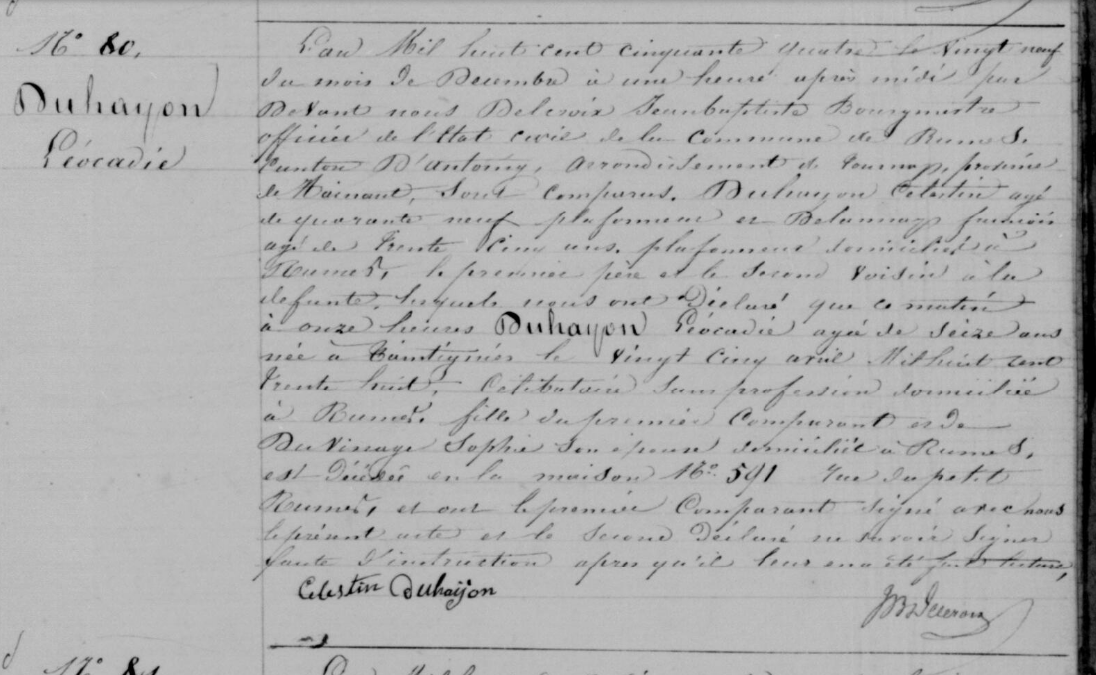 N° 80.
Duhayon
Léocadie
L'an Mil huit cent cinquante quatre le vingt neuf
du mois de Decembre à une heure après midi par
Devant nous Delcroix Jeanbaptiste Bourgmestre
officier de l'Etat civil de la commune de Rumes,
Canton D'antoing, arrondissement de tournay, province
de Hainaut, Sont comparus, Duhayon Celestin agé
de quarante neuf plafonneur et Delannay francois
agé de trente cinq ans, plafonneur domiciliés à
Rumes, le premier père et le second voisin à la
defunte, lesquels nous ont Déclaré que ce matin
à onze heures Duhayon Léocadie agée de Seize ans
née à Taintignies le vingt cinq avril Mil huit cent
trente huit, Célibataire sans profession domiciliée
à Rumes, fille du premier Comparant et de
Duvinage Sophie Son épouse domiciliée à Rumes,
est décédée en la maison N° 591 rue du petit
Rumes, et ont le premier Comparant signé avec nous
le présent acte et le second déclaré ne savoir Signer
faute d'instruction après qu'il leur en a été fait lecture,
Celestin Duhayon
JB Delcroix
N° 81